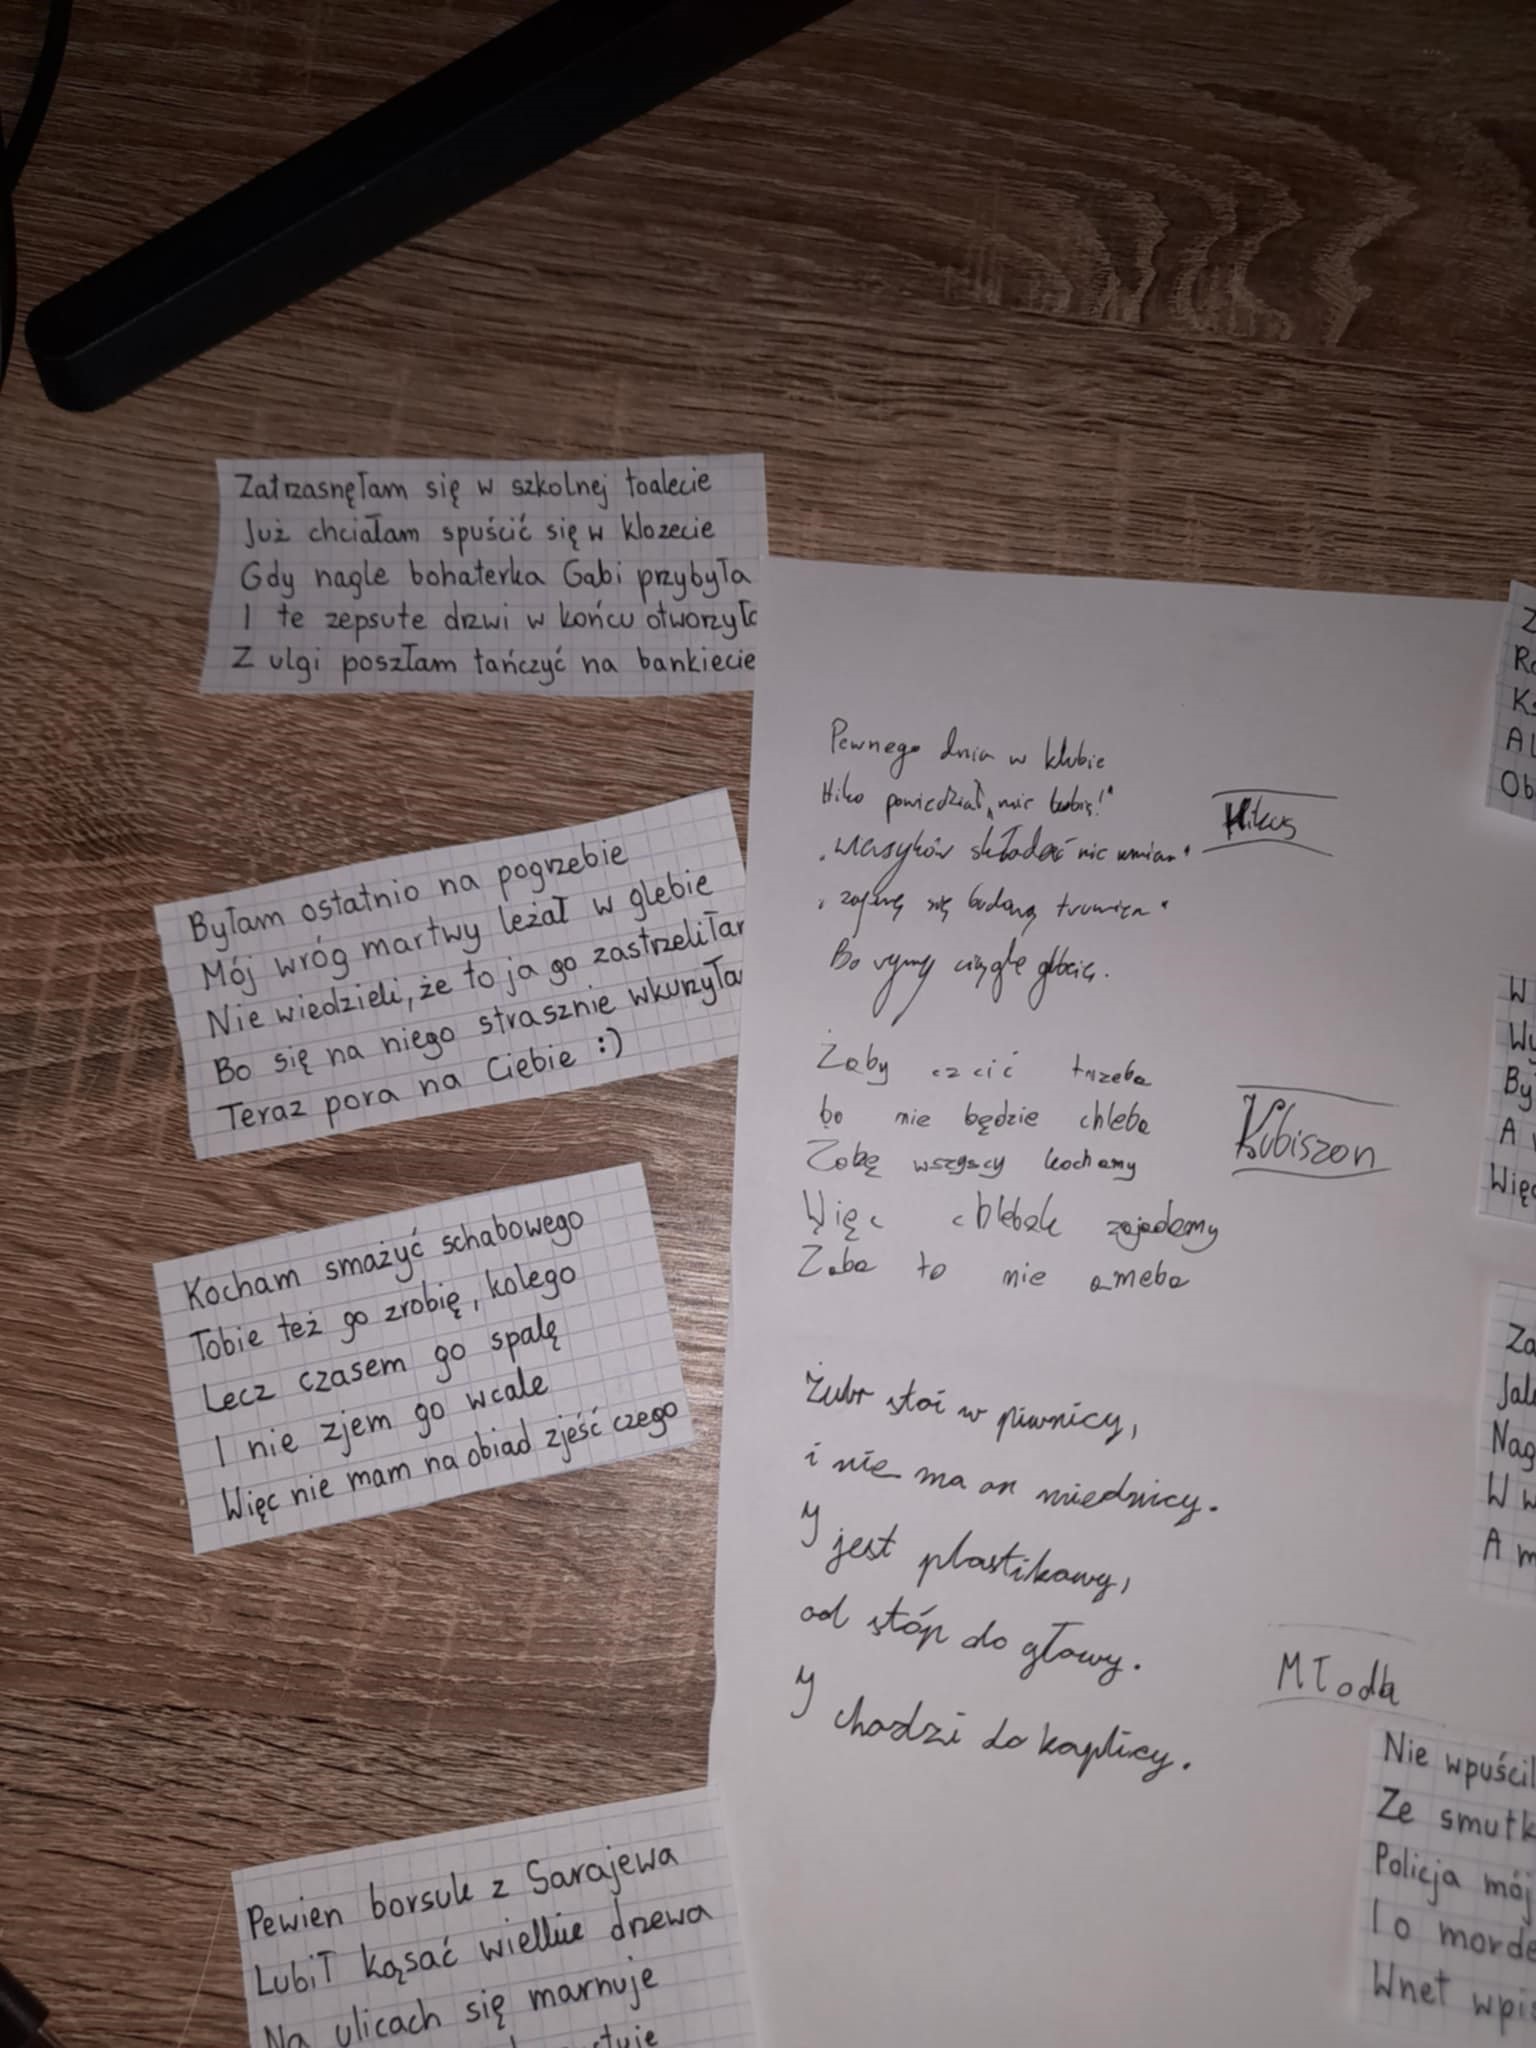 Zatrzasnęłam się w szkolnej toalecie
Już chciałam spuścić się w klozecie
Gdy nagle bohaterka Gabi przybyła
I te zepsute drzwi w końcu otworzyła
Z ulgi poszłam tańczyć na bankiecie
Byłam ostatnio na pogrzebie
Mój wróg martwy leżał w glebie
Nie wiedzieli, że to ja go zastrzeliłam
Bo się na niego strasznie wkurzyła
Teraz pora na Ciebie :)
Kocham smażyć schabowego
Tobie też go zrobię, kolego
Lecz czasem go spalę
I nie zjem go wcale
Więc nie mam na obiad zjeść czego
Pewien borsuk z Sarajewa
Lubił kąsać wielkie drzewa
Na ulicach się marnuje
Pewnego dnia w klubie
Hiko powiedział
składać nie umiem"
Bo rymy ciągle
Hikus
Żaby czcić trzeba
bo nie będzie chleba
Żabę wszyscy kochamy
Więc chlebak zajadamy
Żaba to nie ameba
Kubiszon
Żubr stoi w piwnicy,
i nie ma on miednicy.
Y jest plastikowy,
od stóp do głowy.
Y chodzi do kaplicy.
Młoda
Z
Ks
Al
Ob
W
Wy
By
A
Więc
Za
Nag
W w
A m
Nie wpuścil
Ze smutk
Policja mój
I o morde
Wnet wpis